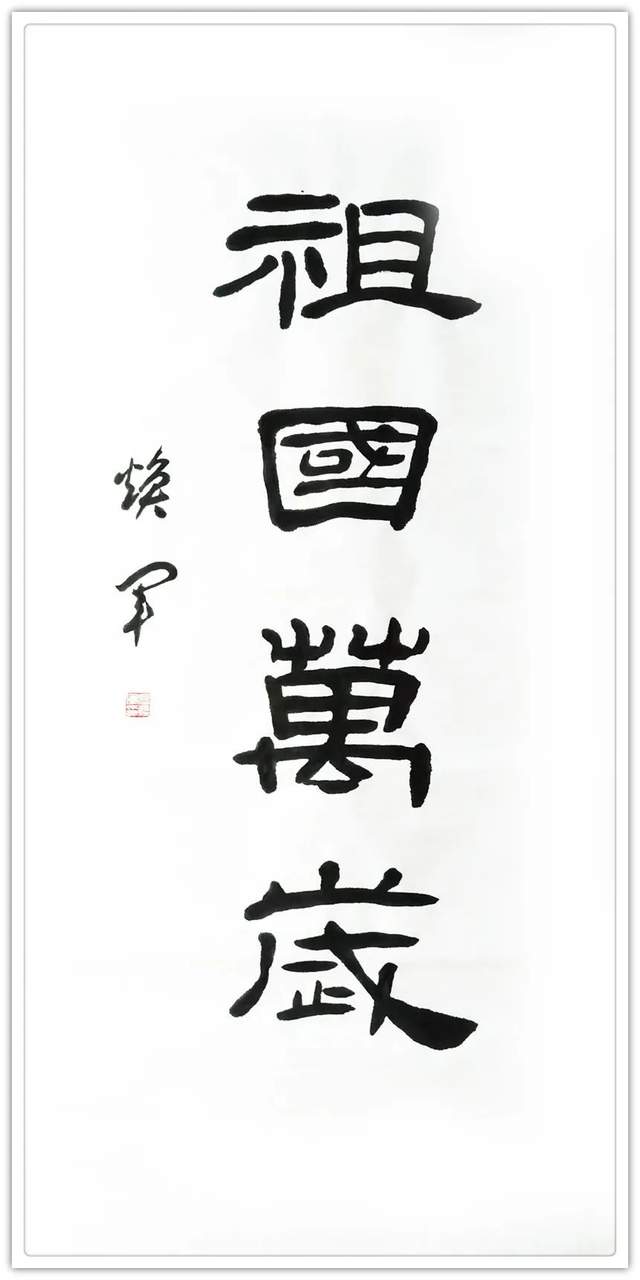 祖國萬歲
焕军